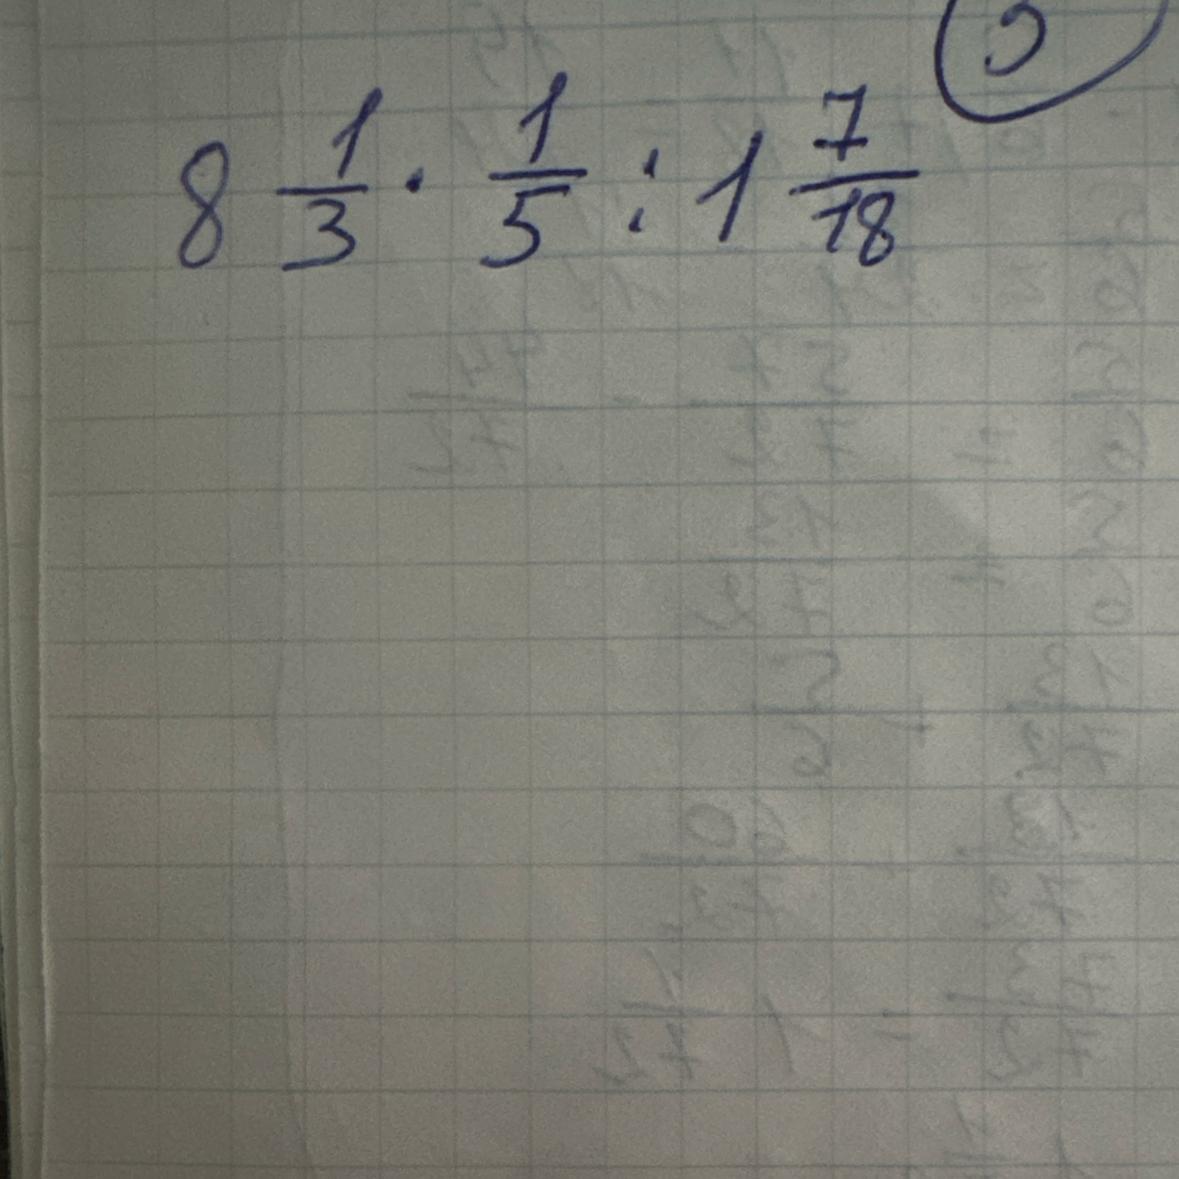 8 1/3 · 1/5 : 1 7/18